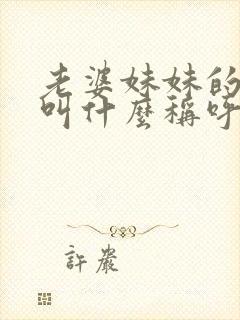 老婆妹妹的
叫什麼稱呼
許嚴